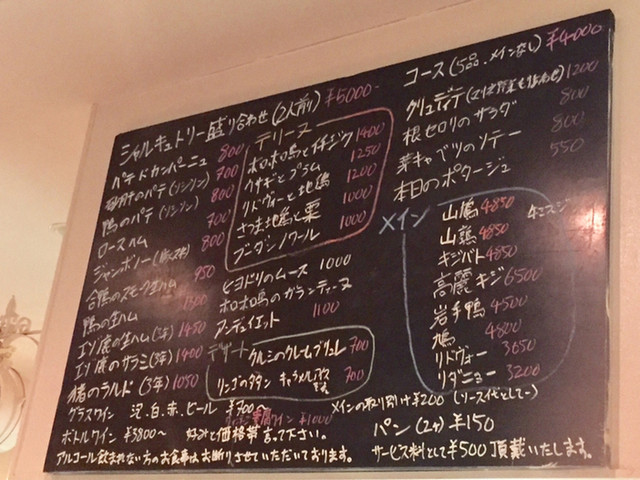 シャルキュトリー盛り合わせ(2人前) ¥5000-
パテ ド カンパーニュ 800
鴨のパテ(リンリン) 800
ロースハム 700
ジャンボノー 800
合鴨のスモーク生ハム 950
鴨の生ハム 1300
エゾ鹿の生ハム(2年) 1450
エゾ鹿のサラミ(3年) 1400
猪のラルド(3年) 1050
グラスワイン 泡、白、赤、ビール ¥700〜
ボトルワイン ¥3800〜 好みと価格帯言って下さい。
アルコール飲まれない方のお食事はお断りさせていただいております。
テリーヌ
ホロホロ鳥とイチジク 1400
ウサギとプラム 1250
リドヴーと地鶏 1200
さつま地鶏と栗 1000
ブーダンノワール 1000
ヒヨドリのムース 1000
ホロホロ鳥のガランティーヌ
アンデュイエット 1100
デザート
クルミのクレームブリュレ 700
リンゴのタタン キャラメルアイス 700
コース(5品、メインなし) ¥4000
クリュディテ 1200
根セロリのサラダ 800
芽キャベツのソテー 800
本日のポタージュ 550
メイン
山鷸 4850
山鶉 4850
キジバト 4850
高麗キジ 6500
岩手鴨 4500
鳩 4800
リドヴォー 3650
リダニョー 3200
メインの取り分け ¥200 (ソース代として-)
パン(2ケ) ¥150
サービス料として¥500 頂戴いたします。